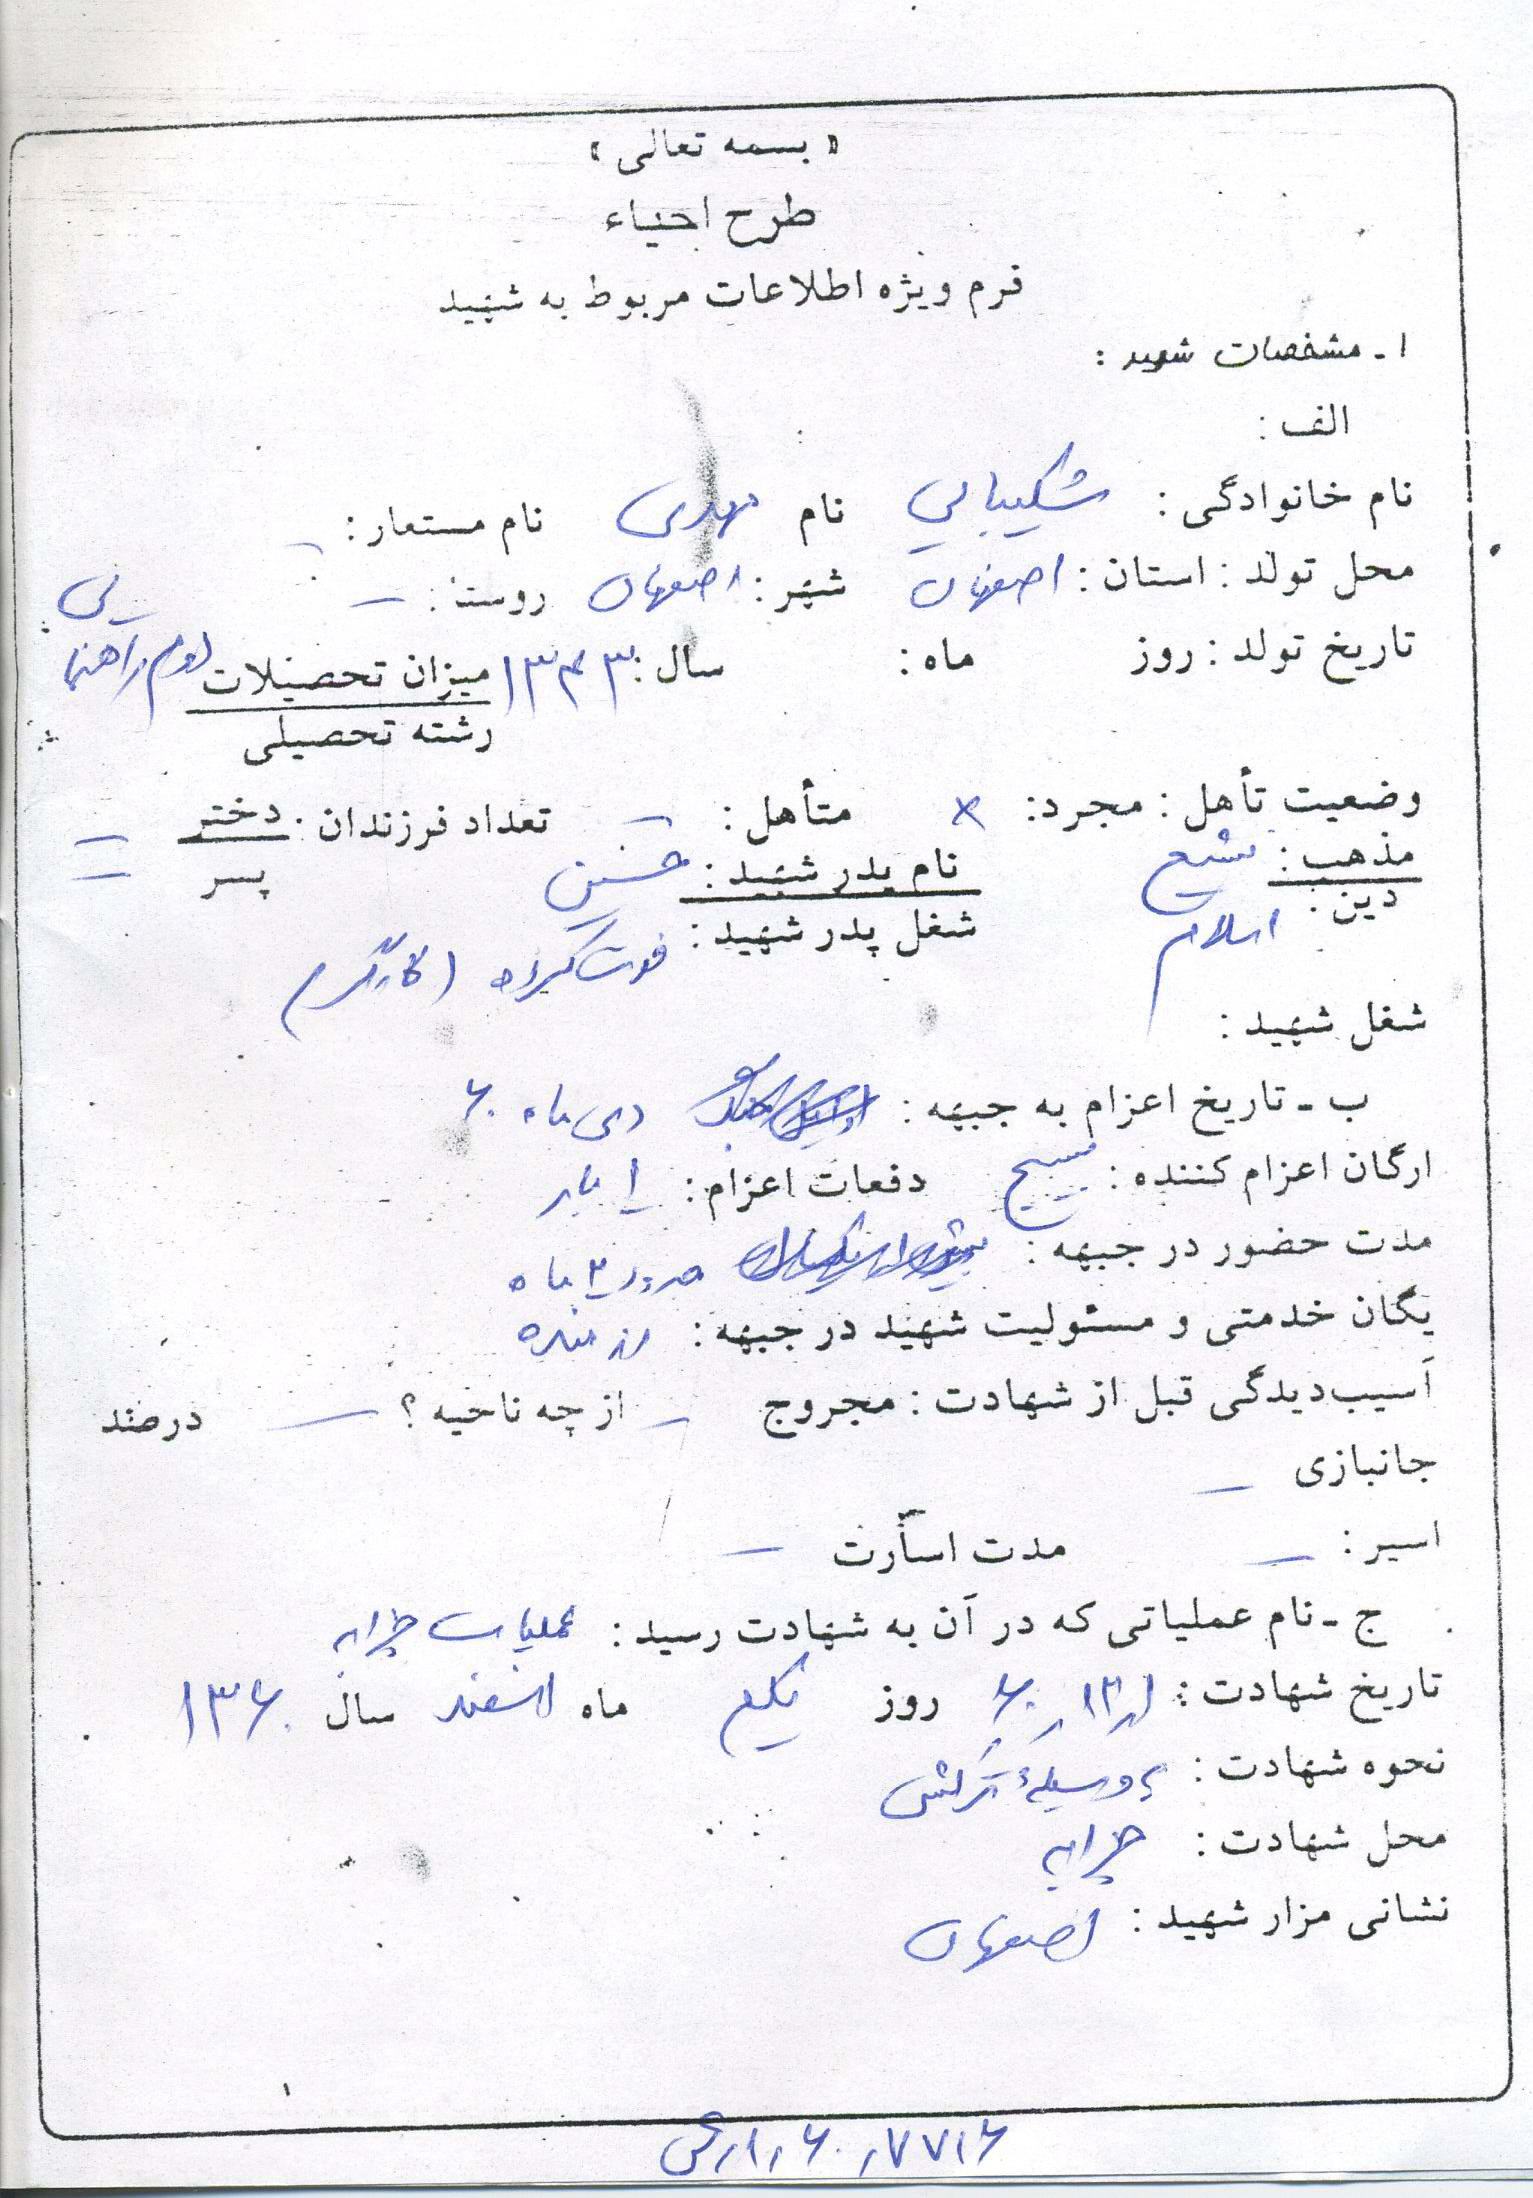 « بسمه تعالی »
طرح احیاء
فرم ویژه اطلاعات مربوط به شهید
۱ - مشخصات شهید :
الف :
نام خانوادگی : شکیبایی نام مهدی نام مستعار : -
محل تولد : استان : اصفهان شهر : اصفهان روستا : -
تاریخ تولد : روز ماه : سال : ۱۳۴۳ میزان تحصیلات دوم راهنمایی
رشته تحصیلی
وضعیت تأهل : مجرد : × متأهل : - تعداد فرزندان : دختر -
پسر -
مذهب : شیعه نام پدر شهید : حسین
دین : اسلام شغل پدر شهید : فوت کرده (کارگر)
شغل شهید :
ب - تاریخ اعزام به جبهه : دی ماه ۶۰
ارگان اعزام کننده : بسیج دفعات اعزام : ۱ بار
مدت حضور در جبهه : حدود ۲ ماه
یگان خدمتی و مسئولیت شهید در جبهه : رزمنده
آسیب‌دیدگی قبل از شهادت : مجروح - از چه ناحیه ؟ - درصد
جانبازی -
اسیر : - مدت اسارت -
ج - نام عملیاتی که در آن به شهادت رسید : عملیات چزابه
تاریخ شهادت : ۶۰/۱۲/۱ روز یکم ماه اسفند سال ۱۳۶۰
نحوه شهادت : بوسیله ترکش
محل شهادت : چزابه
نشانی مزار شهید : اصفهان